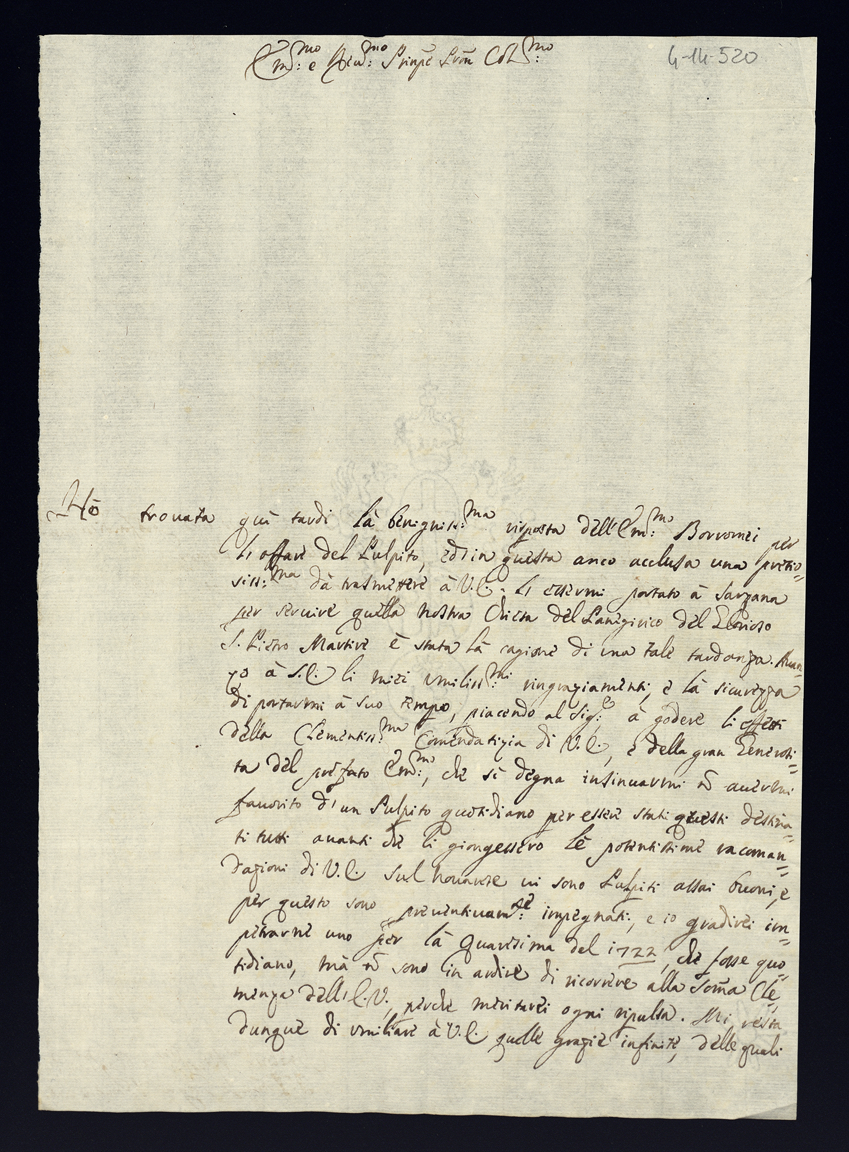 Em:mo e Rev:mo Prinpe Pron Col:mo
4-14-520
Hò trovata quì tardi la benigniss:ma risposta dell'Em:mo Borromei per
li affari del Pulpito, ed in questa anco acclusa una pretio=
siss:ma da trasmettere à V.E. Li essermi portato à Sarzana
per servire quella nostra Chiesa del Panegirico del Glorioso
S. Pietro Martire è stata la cagione di una tale tardanza. Avan=
zo à S.E. li miei umiliss:mi ringraziamenti, e la sicurezza
di portarmi à suo tempo, piacendo al Sig:re à godere li effetti
della Clementiss:ma Comendatizia di V.E., e della gran Generosi=
ta del prefato Em:mo, che si degna insinuarmi nō avermi
favorito d'un Pulpito quotidiano per essere stati questi destina=
ti tutti avanti che li giongessero le potentissime racoman=
dazioni di V.E. Sul novarese vi sono Pulpiti assai buoni, e
per questo sono preventivam:te impegnati, e io gradirei im=
petrarne uno per la Quaresima del 1722, che fosse quo=
tidiano, mà nō sono in ardire di ricorrere alla Soma Cle=
menza dell'E.V., perche meritarei ogni ripulsa. Mi resta
dunque di umiliare à V.E. quelle grazie infinite, delle quali